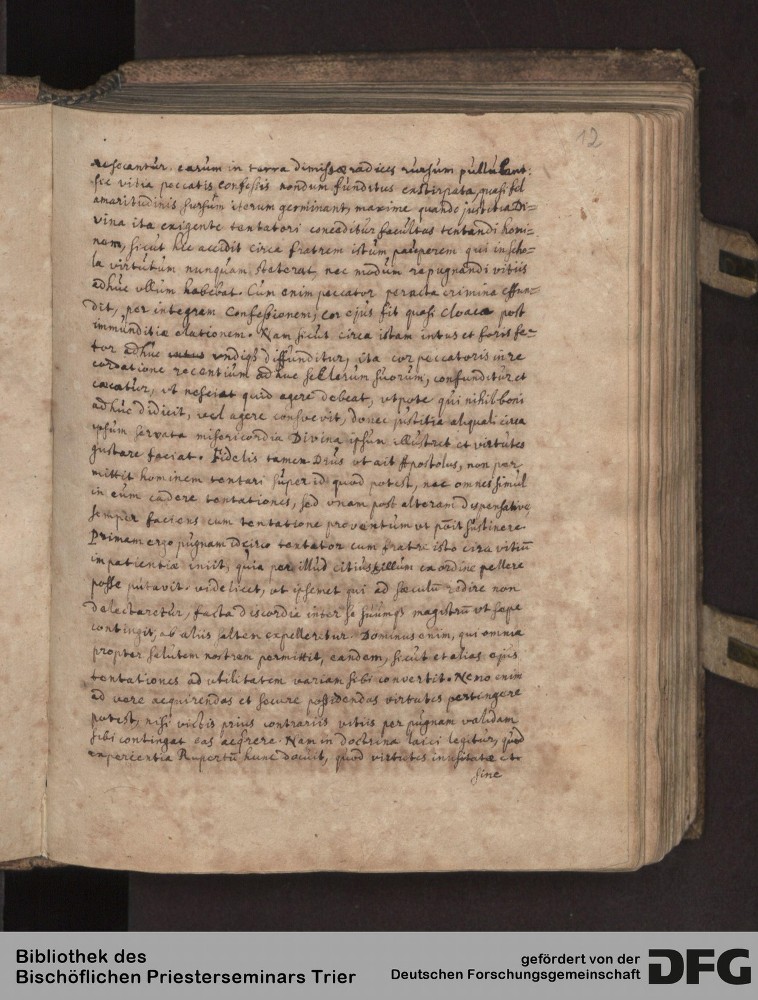 12
resecantur. earum in terra dimissæ radices rursum pullulant:
sic vitia peccatis confessis nondum funditus extirpata, quasi fel
amaritudinis sursum iterum germinant, maxime quando justitia Di=
vina ita exigente tentatori conceditur facultas tentandi homi=
nem, sicut hic accidit circa fratrem istum pauperem qui in scho=
la virtutum nunquam steterat, nec modum repugnandi vitiis
adhuc ullum habebat. Cum enim peccator peracta crimina effun=
dit, per integram Confessionem, cor ejus fit quasi cloaca post
immunditiæ elationem. Nam sicut circa istam intus et foris fe=
tor adhuc undiqs diffunditur, ita cor peccatoris in re
cordatione recentium adhuc scelerum suorum, confunditur et
cæcatur, ut nesciat quid agere debeat, utpote qui nihil boni
adhuc didicit, vel agere consuevit, donec justitia aliquali circa
ipsum servata misericordia Divina ipsum illustret et virtutes
gustare faciat. Fidelis tamen Deus ut ait Apostolus, non per
mittit hominem tentari super id quod potest, nec omnes simul
in eum cadere tentationes, sed unam post alteram dispensative
semper faciens cum tentatione proventum ut possit sustinere.
Primam ergo pugnam idcirco tentator cum fratre isto circa vitiū
impatientiæ iniit, quia per illud citius illum ex ordine pellere
posse putavit. videlicet, ut ipsemet qui ad sæculū redire non
delectaretur, facta discordia inter se suumqs magistrū ut sæpe
contingit, ab aliis saltem expelleretur. Dominus enim, qui omnia
propter salutem nostram permittit, eandem, sicut et alias ejus
tentationes ad utilitatem variam sibi convertit. Nemo enim
ad vere acquirendas et secure possidendas virtutes pertingere
potest, nisi victis prius contrariis vitiis per pugnam validam
sibi contingat eas acqrere. Nam in doctrina laici legitur, quod
experientia Rupertū hunc docuit, quod virtutes inusitatæ etc
sine
Bibliothek des
Bischöflichen Priesterseminars Trier
gefördert von der
Deutschen Forschungsgemeinschaft
DFG